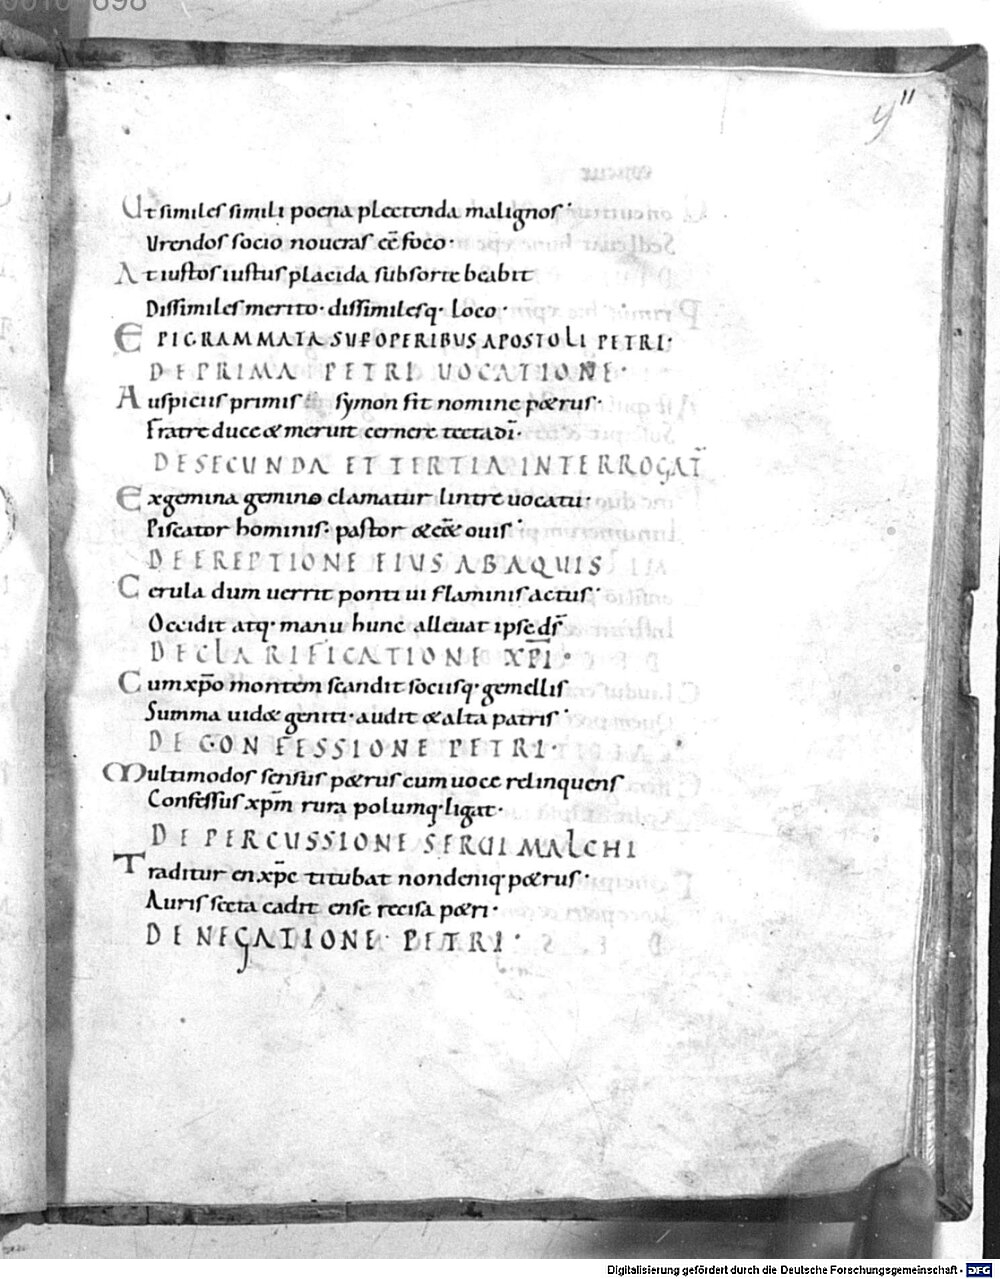 00104698
11
Ut similes simili poena plectenda malignos·
Vrendos socio noueras cē foco·
At iustos iustus placida sub sorte beabit
Dissimiles merito· dissimilesq· loco·
EPIGRAMMATA SUP OPERIBUS APOSTOLI PETRI·
DE PRIMA PETRI UOCATIONE·
Auspiciis primis symon sit nomine pętrus·
Fratre duce & meruit cernere tecta dī·
DE SECUNDA ET TERTIA INTERROGAT̄
Ex gemina gemino clamatur lintre uocatu·
Piscator hominis· pastor & ouis·
DE EREPTIONE EIUS AB AQUIS
Cerula dum uerrit ponti ui flaminis actus·
Occidit atq· manu hunc alleuat ipse ds̄
DE CLARIFICATIONE XP̄I·
Cum xp̄o montem scandit sociisq· gemellis
Summa uid& geniti· audit & alta patris·
DE CONFESSIONE PETRI·
Multimodos sensus p&rus cum uoce relinquens
Confessus xpm̄ rura polumq· ligat·
DE PERCUSSIONE SERUI MALCHI
Traditur en xp̄c titubat non deniq p&rus·
Auris secta cadit ense recisa p&ri·
DE NEGATIONE· PETRI·
Digitalisierung gefördert durch die Deutsche Forschungsgemeinschaft - DFG